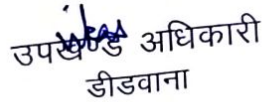 उपखण्ड अधिकारी
डीडवाना